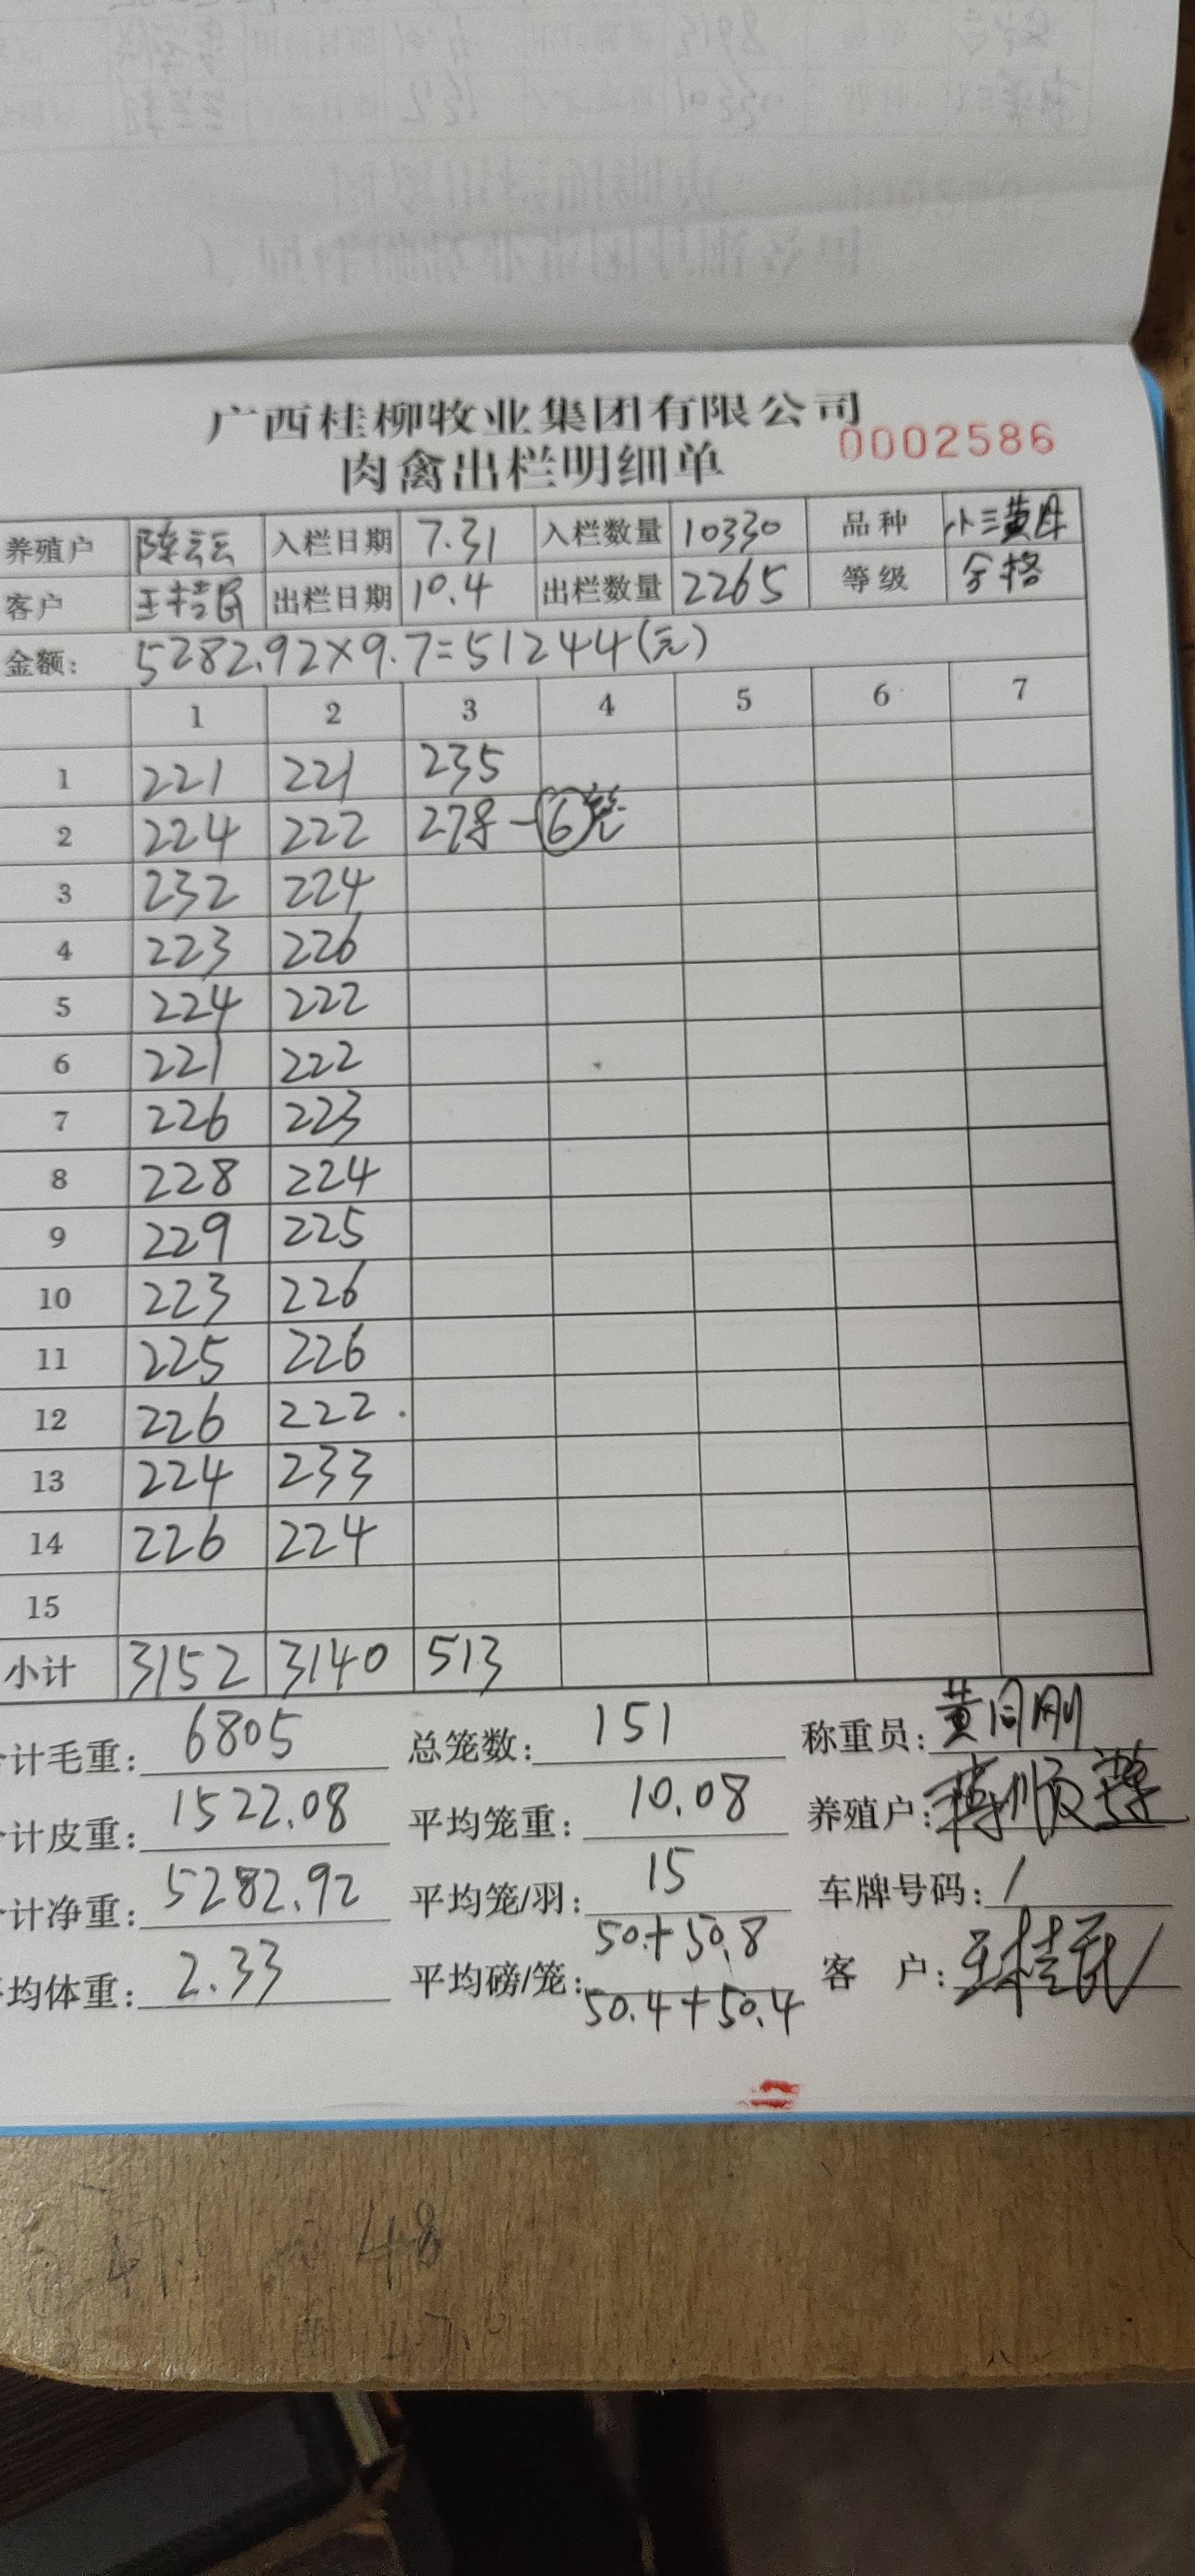 广西桂柳牧业集团有限公司
肉禽出栏明细单 0002586
养殖户 陈云云 入栏日期 7.31 入栏数量 10330 品种 小三黄母
客户 王桂民 出栏日期 10.4 出栏数量 2265 等级 合格
金额: 5282.92×9.7=51244(元)
1 2 3 4 5 6 7
1 221 221 235
2 224 222 278-⑥笼
3 232 224
4 223 226
5 224 222
6 221 222
7 226 223
8 228 224
9 229 225
10 223 226
11 225 226
12 226 222.
13 224 233
14 226 224
15
小计 3152 3140 513
计毛重: 6805 总笼数: 151 称重员: 黄同刚
计皮重: 1522.08 平均笼重: 10.08 养殖户:
计净重: 5282.92 平均笼/羽: 15 车牌号码: /
均体重: 2.33 平均磅/笼: 50+50.8 客 户: 王桂民
50.4+50.4
48